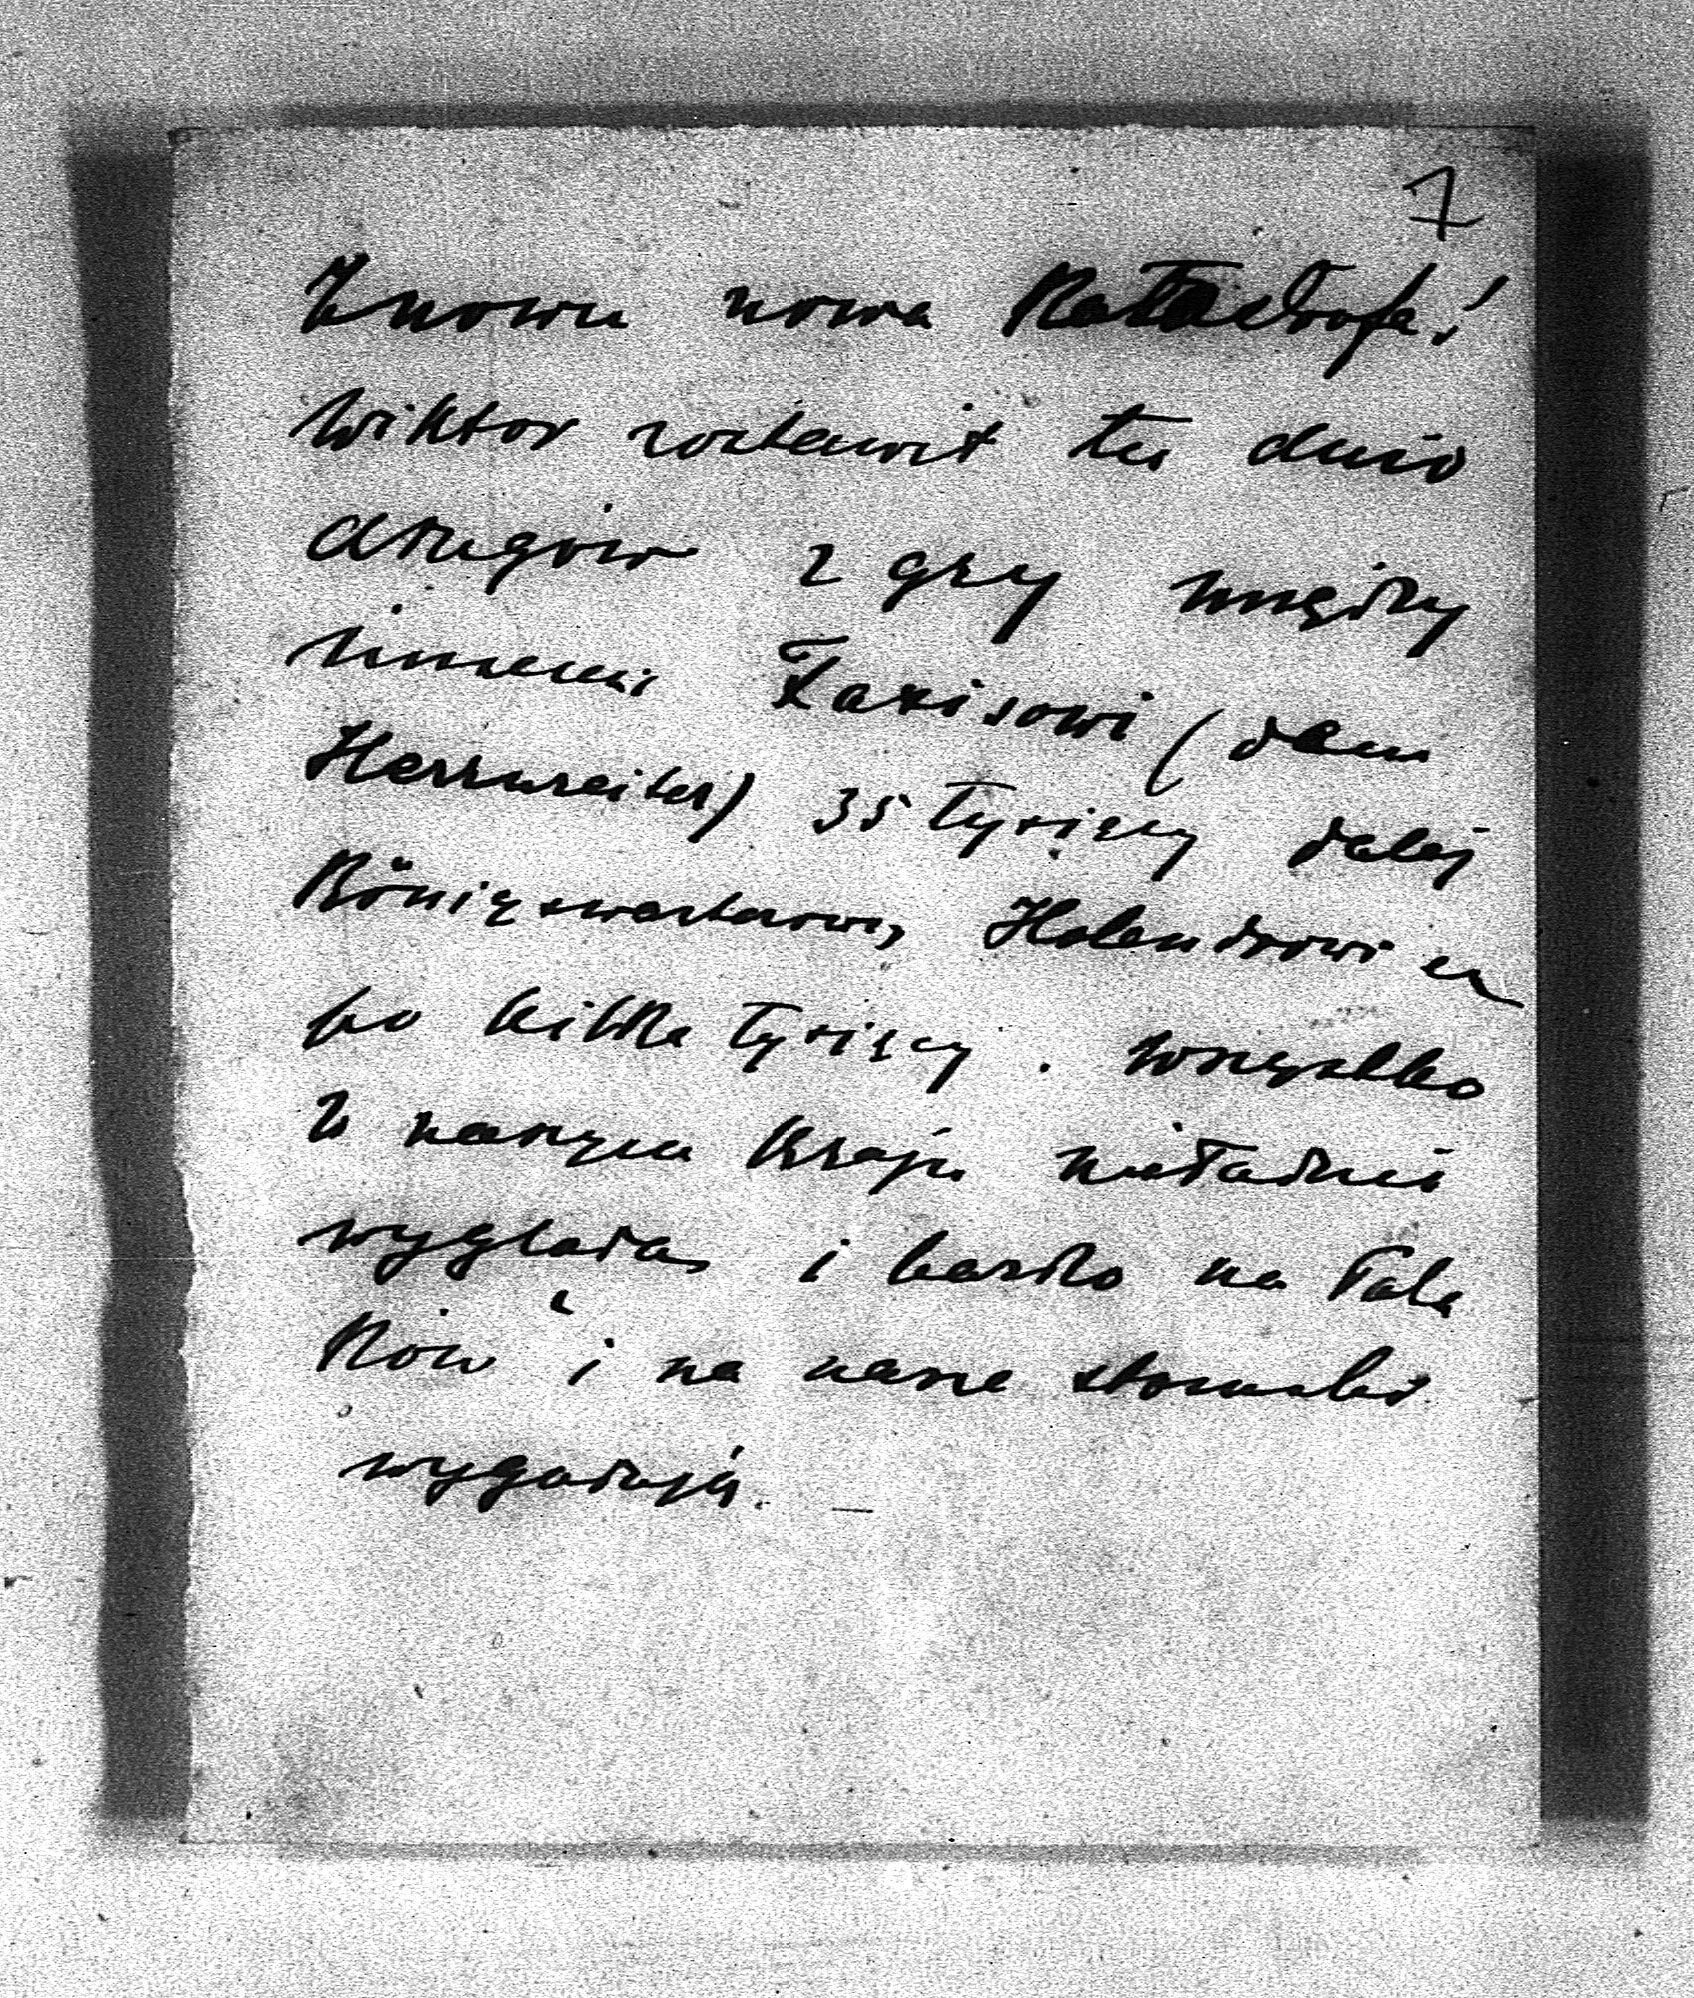 7
Znowu nowa Katastrofa!
Wiktor zostawił tu dużo
długów z gry między
innemi Taxisowi (dem
Herrnreiter) 35 tysięcy dalej
Königswarterowi, Holendrowi
po kilka tysięcy. Wszystko
w naszym Kraju nieładnie
wygląda, i bardzo na Pola
Ków i na nasze stosunki
wygadują. —